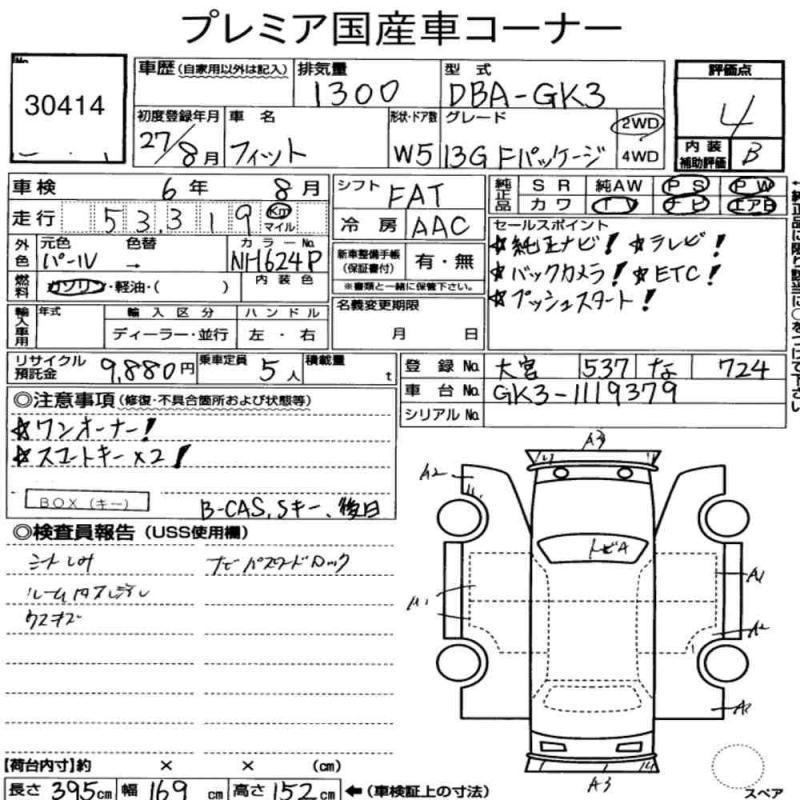 プレミア国産車コーナー
No
30414
車歴(自家用以外は記入) 排気量 1300 型式 DBA-GK3
初度登録年月 27/8月 車名 フィット 形状・ドア数 W5 グレード 13G Fパッケージ 2WD 4WD
評価点 4
内装補助評価 B
車検 6年 8月
走行 53,319 Km マイル
シフト FAT
冷房 AAC
純正品 SR 純AW PS PW
カワ TV ナビ エアB
外色 元色 パール 色替 → カラーNo. NH624P
内装色
燃料 ガソリン・軽油・( )
新車整備手帳(保証書付) 有・無
※書類と一緒に保管下さい。
セールスポイント
☆純正ナビ! ☆テレビ!
☆バックカメラ! ☆ETC!
☆プッシュスタート!
輸入車用 年式 輸入区分 ディーラー・並行 ハンドル 左・右
名義変更期限 月 日
リサイクル預託金 9,880円 乗車定員 5人 積載量 t
登録No. 大宮 537 な 724
車台No. GK3-1119379
シリアルNo.
◎注意事項(修復・不具合箇所および状態等)
☆ワンオーナー!
☆スマートキー×2!
BOX(キー)
B-CAS, Sキー、後日
◎検査員報告(USS使用欄)
シートしみ ナビパスワードロック
ウスキズ
A3
A2
トビA
A1
A2
A3
【荷台内寸】約 × × (cm)
長さ 395cm 幅 169cm 高さ 152cm ←(車検証上の寸法)
スペア
←純正品に限り該当に○をつけて下さい